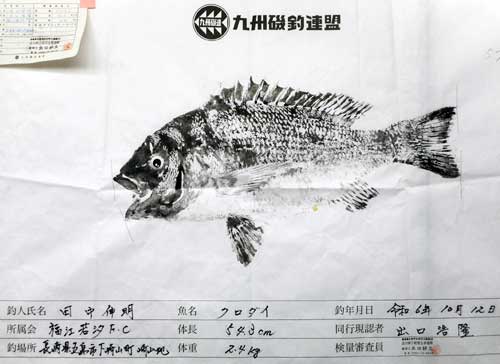 九州磯連
九州磯釣連盟
釣人氏名 田中伸明 魚名 クロダイ 釣年月日 令和6年10月12日
所属会 福江若汐F.C 体長 54.3cm 同行現認者 出口浩隆
釣場所 長崎県五島市下崎山町 崎山鼻 体重 2.4kg 検量審査員